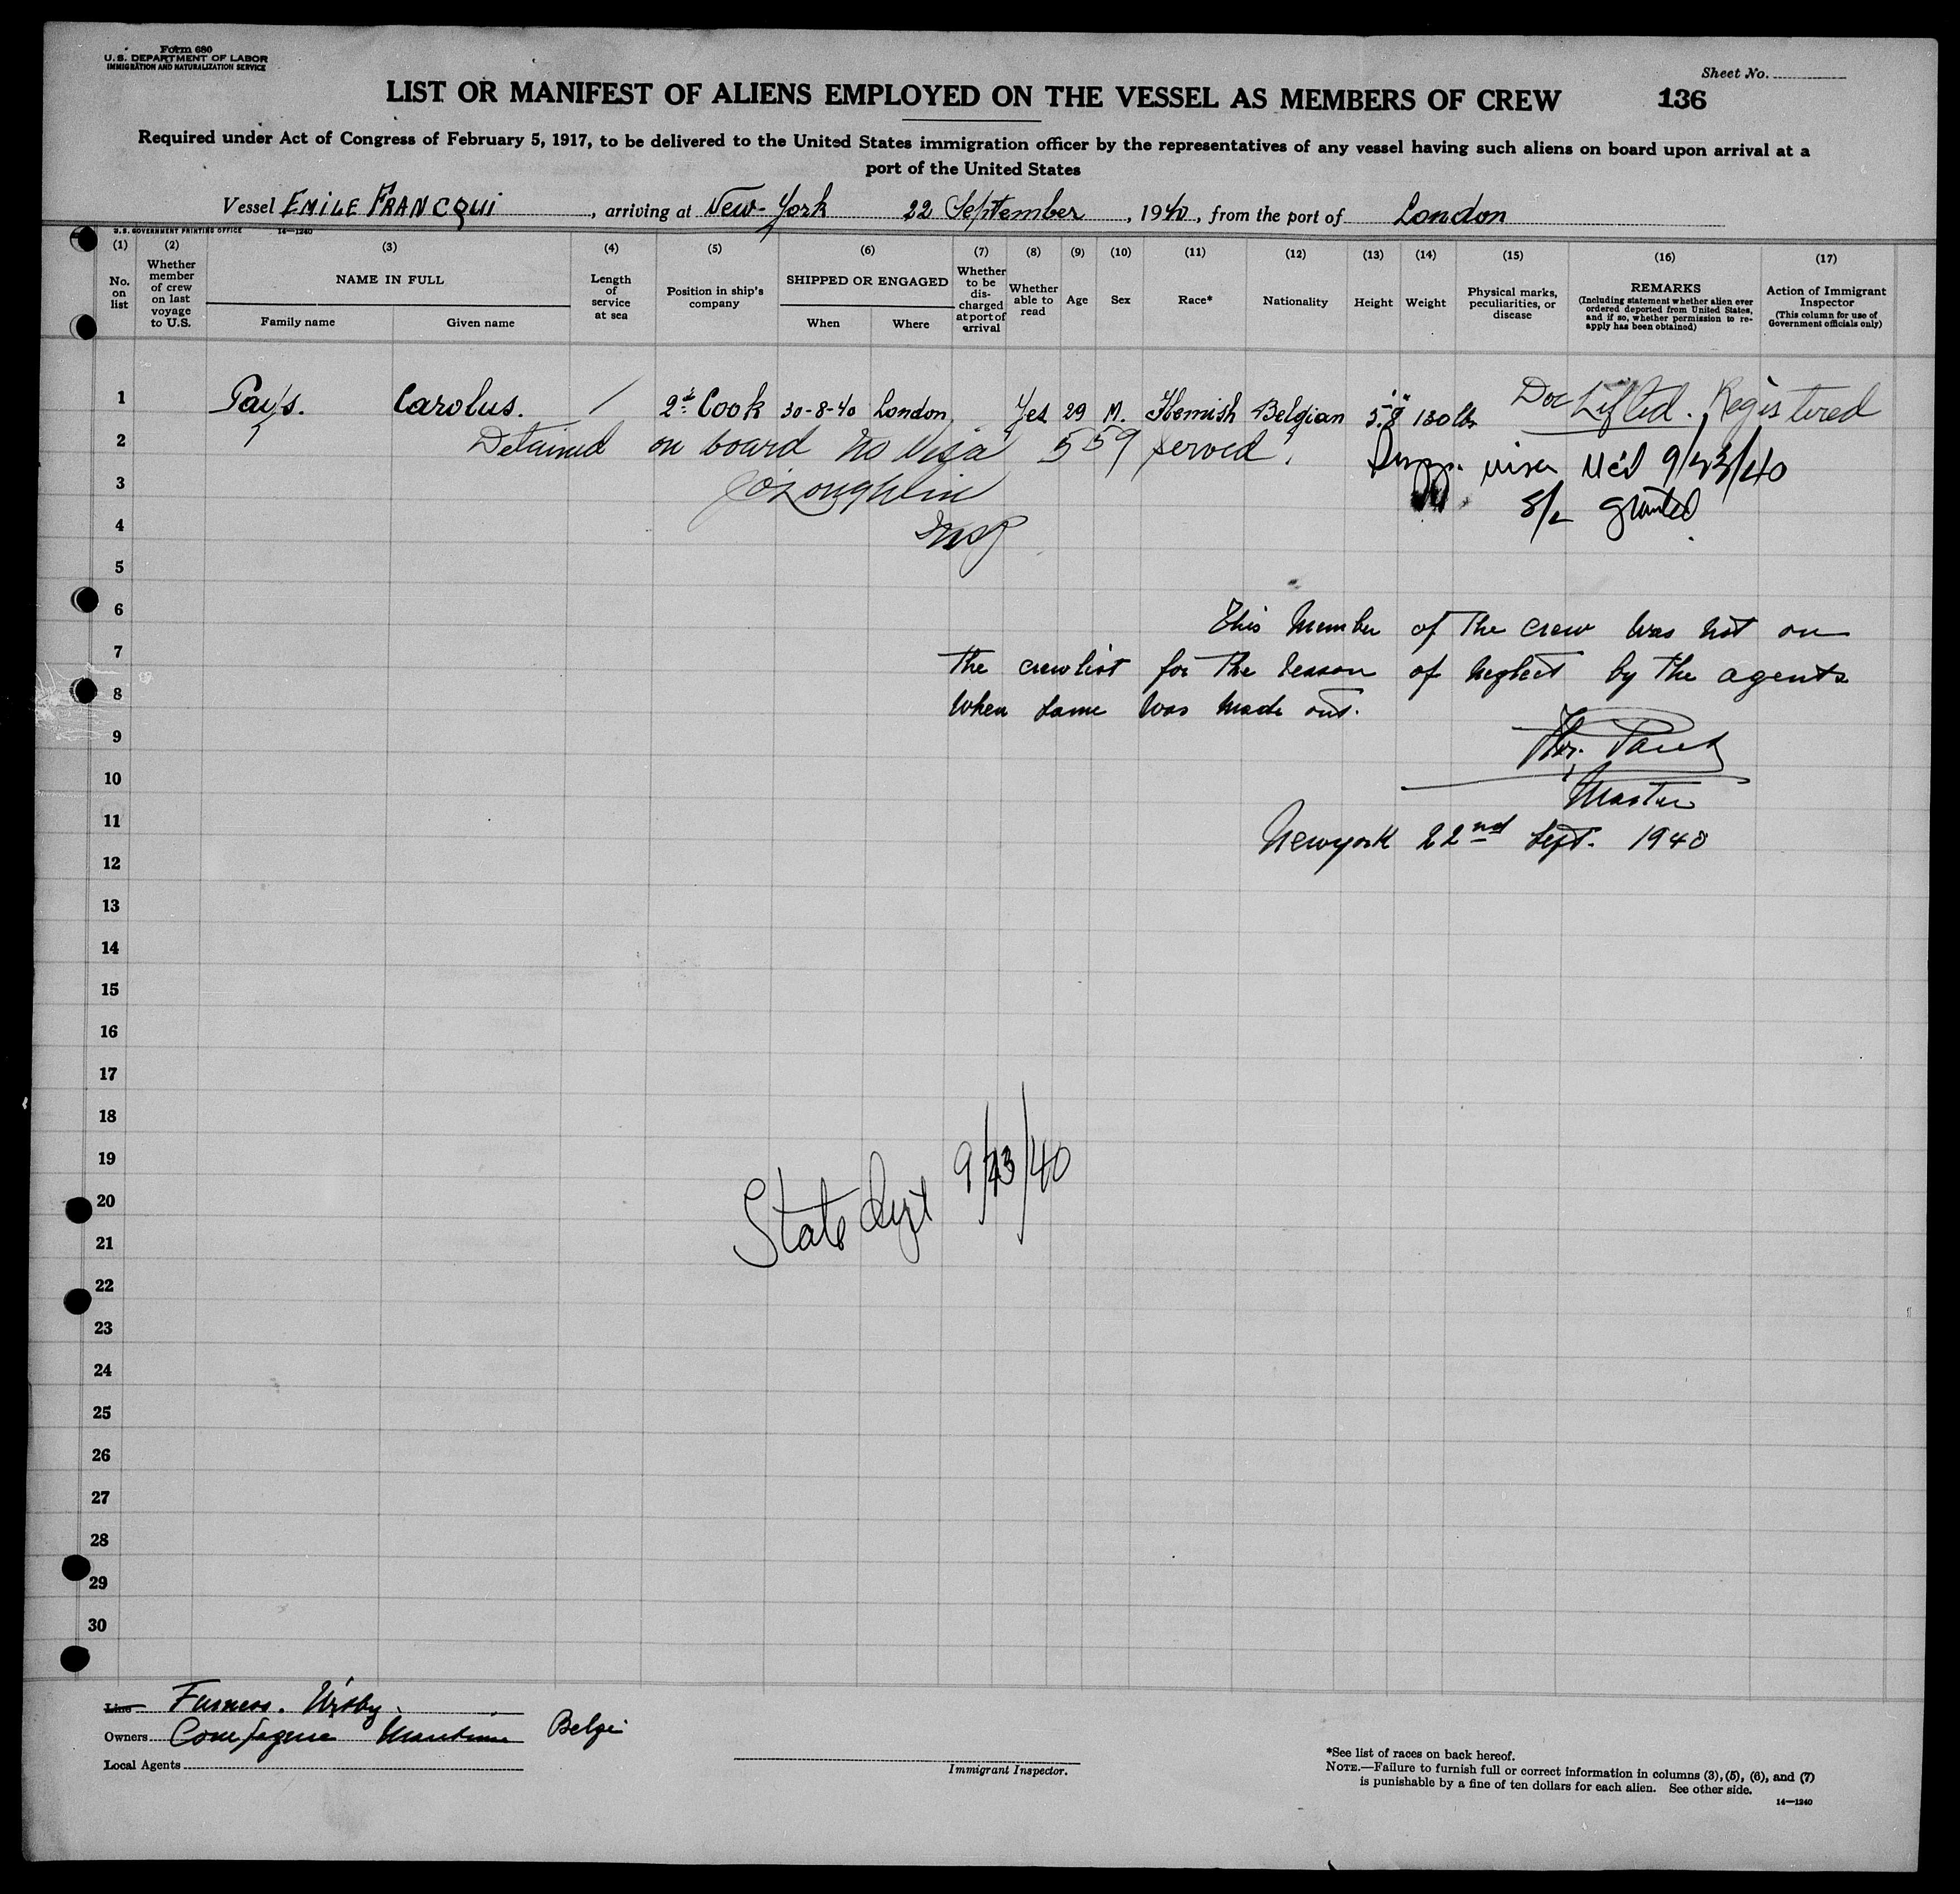 Form 680
U.S. DEPARTMENT OF LABOR
IMMIGRATION AND NATURALIZATION SERVICE
Sheet No.
LIST OR MANIFEST OF ALIENS EMPLOYED ON THE VESSEL AS MEMBERS OF CREW
136
Required under Act of Congress of February 5, 1917, to be delivered to the United States immigration officer by the representatives of any vessel having such aliens on board upon arrival at a
port of the United States
Vessel EMILE FRANCQUI, arriving at New-York 22 September, 1940, from the port of London
U.S. GOVERNMENT PRINTING OFFICE 14—1240
(1) No. on list
(2) Whether member of crew on last voyage to U.S.
(3) NAME IN FULL
Family name Given name
(4) Length of service at sea
(5) Position in ship's company
(6) SHIPPED OR ENGAGED
When Where
(7) Whether to be discharged at port of arrival
(8) Whether able to read
(9) Age
(10) Sex
(11) Race*
(12) Nationality
(13) Height
(14) Weight
(15) Physical marks, peculiarities, or disease
(16) REMARKS
(Including statement whether alien ever ordered deported from United States, and if so, whether permission to reapply has been obtained)
(17) Action of Immigrant Inspector
(This column for use of Government officials only)
1 Pays. Carolus. / 2d Cook 30-8-40 London Yes 29 M. Flemish Belgian 5'.8" 130 lbs Doc Lifted. Registered
2 Detained on board No Visa 559 served. Supp. visa rec'd 9/23/40
3 J O'Loughlin S/L granted
4 Insp
5
6 This Member of the crew was not on
7 the crewlist for the reason of neglect by the agents
8 when same was made out.
9
10 Master
11 Newyork 22nd Sept. 1940
12
13
14
15
16
17
18
19
20 State Dept 9/23/40
21
22
23
24
25
26
27
28
29
30
Line Furness. Withy.
Owners Compagnie Maritime Belge
Local Agents
Immigrant Inspector.
*See list of races on back hereof.
NOTE.—Failure to furnish full or correct information in columns (3), (5), (6), and (7)
is punishable by a fine of ten dollars for each alien. See other side.
14—1240